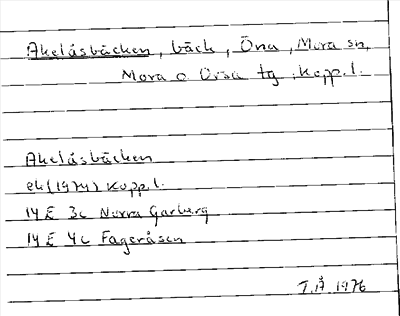 Akelåsbäcken, bäck, Öna, Mora sn,
Mora o Orsa tg, Kopp. l.
Akelåsbäcken
ek (1974) Kopp. l.
14 E 3c Norra Garberg
14 E 4c Fageråsen
T.Å 1976